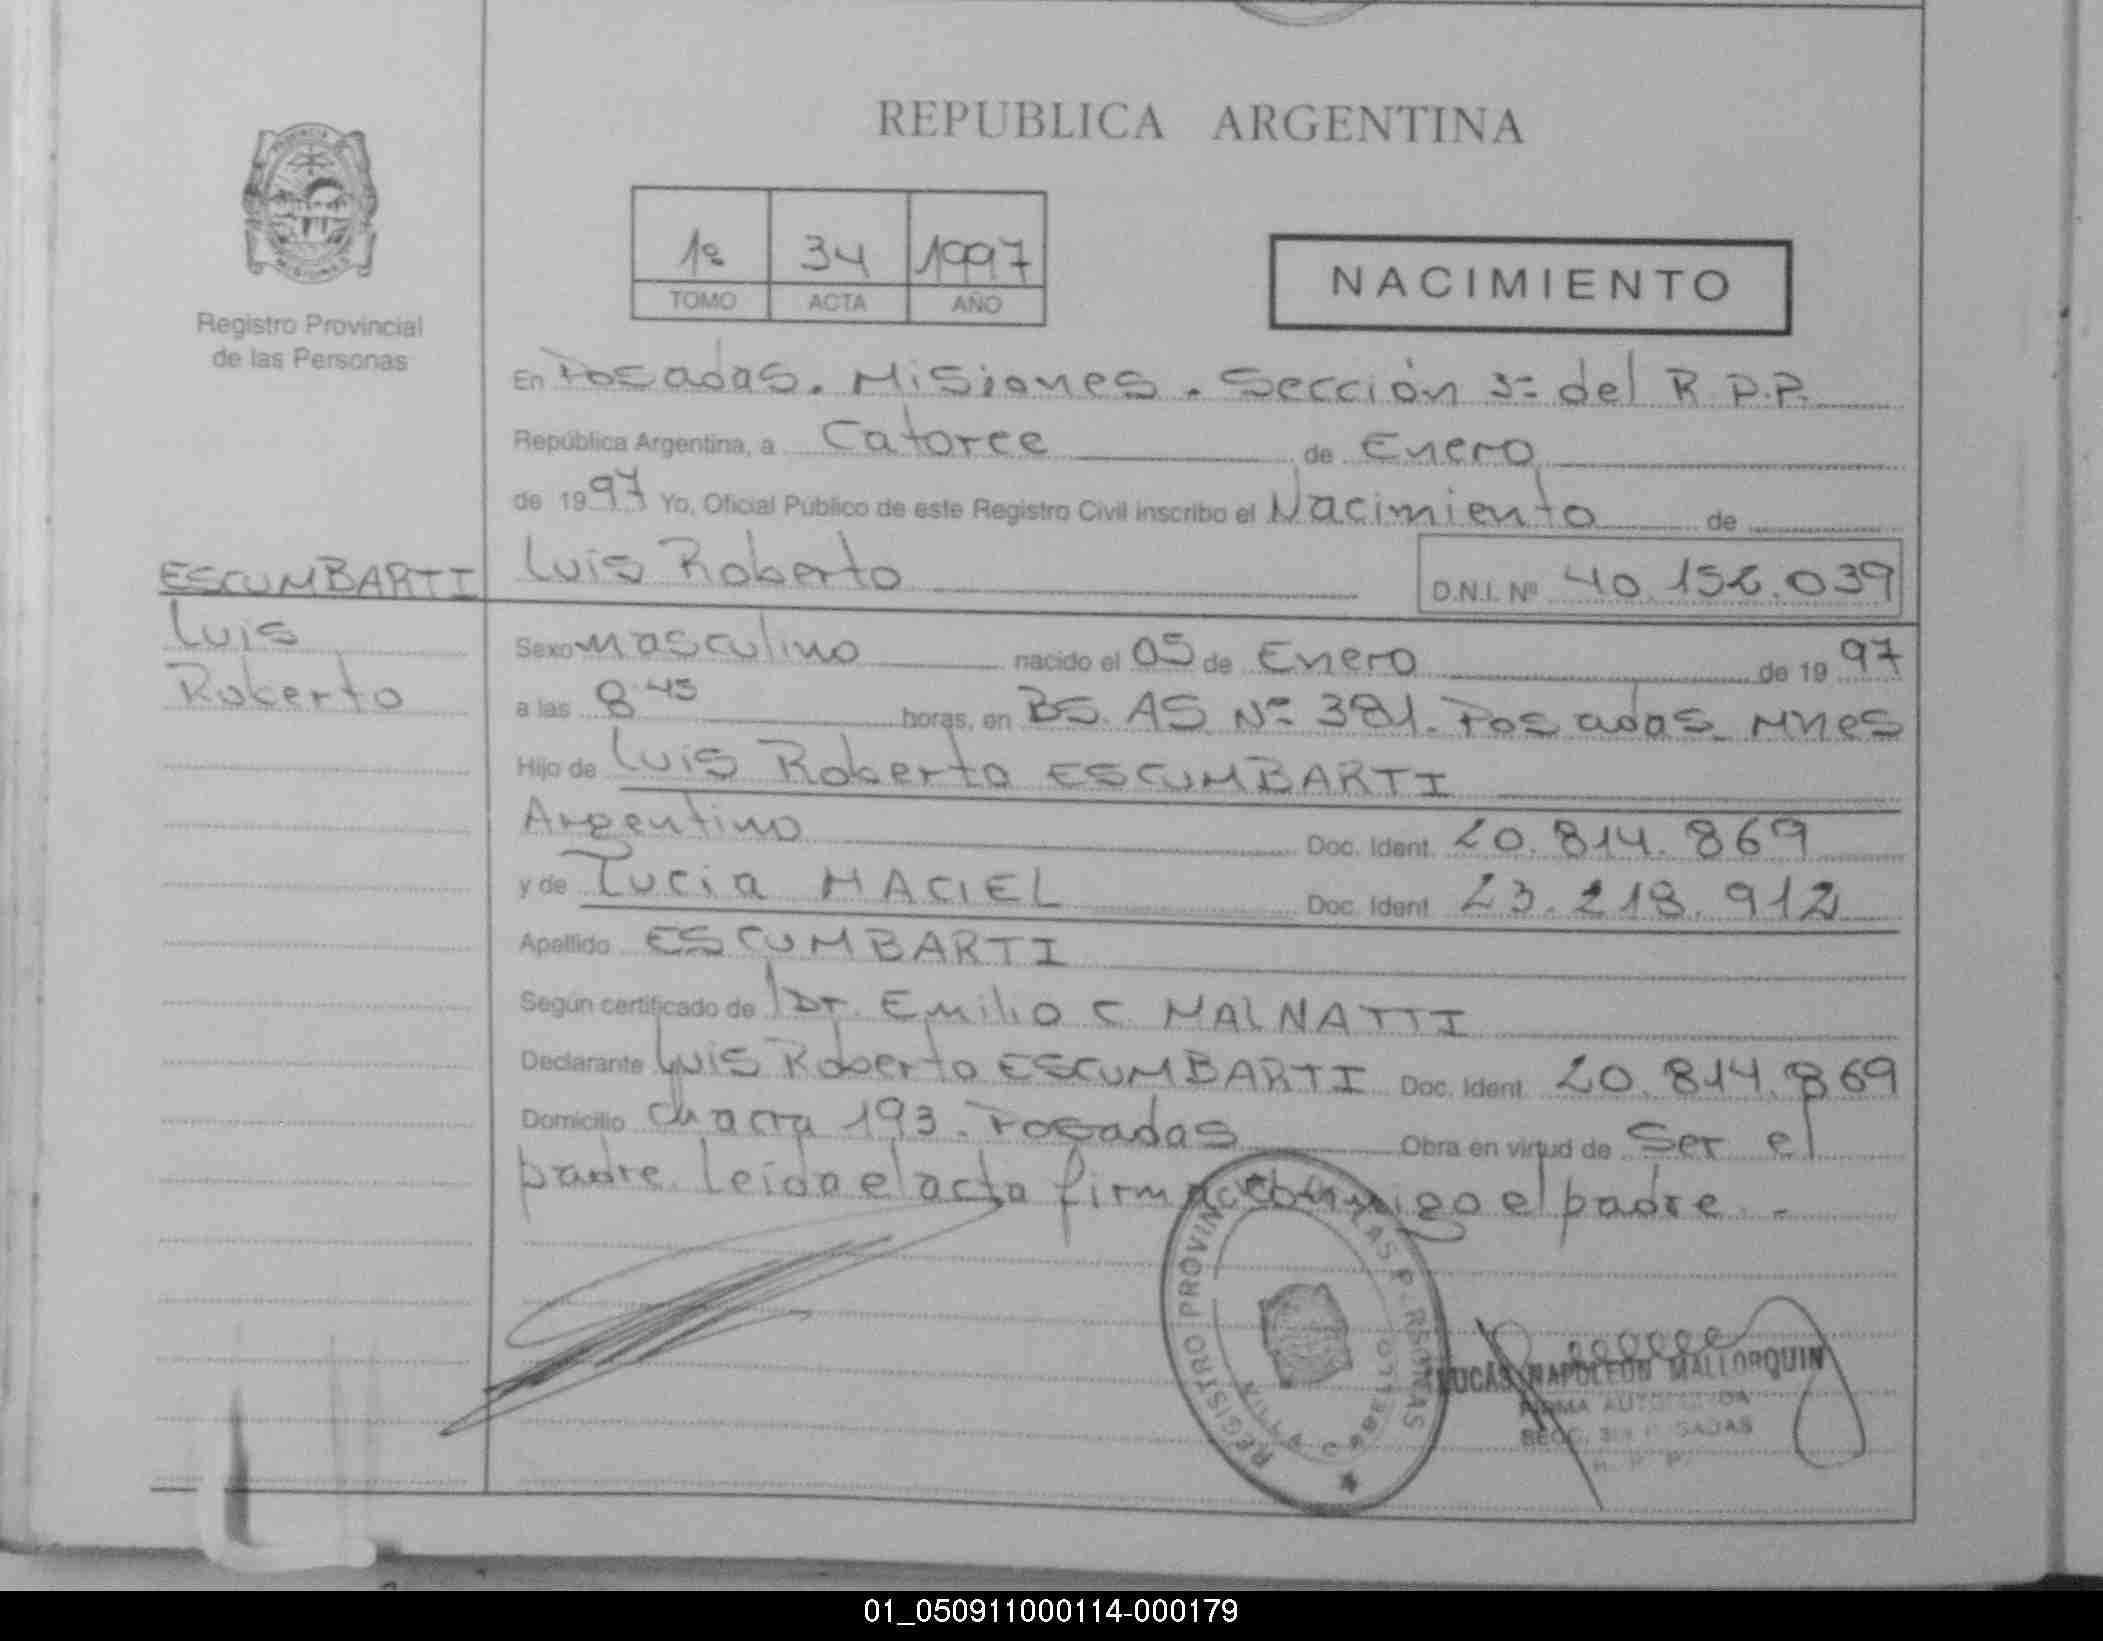 REPUBLICA ARGENTINA
1º 34 1997
TOMO ACTA AÑO
NACIMIENTO
Registro Provincial
de las Personas
En Posadas. Misiones. Sección 3= del R.P.P.
República Argentina, a Catorce de Enero
de 1997 Yo, Oficial Público de este Registro Civil inscribo el Nacimiento de
ESCUMBARTI Luis Roberto D.N.I. Nº
Luis
Roberto
Sexo masculino nacido el 05 de Enero de 1997
a las 8 45 horas, en BS. AS Nº 381. Posadas. Mnes
Hijo de Luis Roberto ESCUMBARTI
Argentino Doc. Ident. 20.814.869
y de Lucia MACIEL Doc. Ident. 23.218.912
Apellido ESCUMBARTI
Según certificado de Dr. Emilio C. MALNATTI
Declarante Luis Roberto ESCUMBARTI Doc. Ident. 20.814.869
Domicilio chacra 193. Posadas Obra en virtud de Ser el
padre. Leida el acta firma conmigo el padre. -
REGISTRO PROVINCIAL DE LAS PERSONAS
VILLA CABELLO
LUCAS NAPOLEON MALLORQUIN
FIRMA AUTORIZADA
SECC. 3ra POSADAS
R. P. P.
01_050911000114-000179